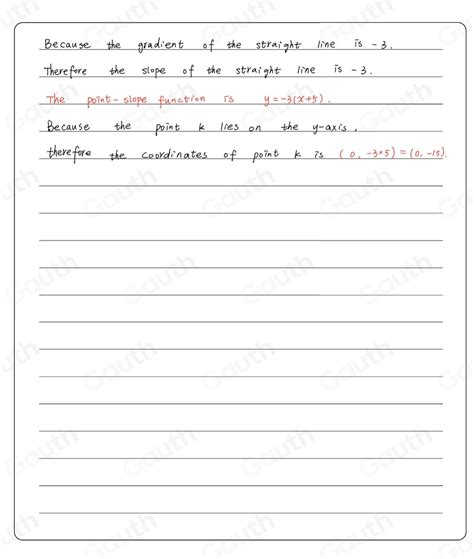 Because the gradient of the straight line is -3.
Therefore the slope of the straight line is -3.
The point-slope function is y=-3(x+5).
Because the point k lies on the y-axis,
therefore the coordinates of point k is (0, -3×5) = (0, -15).